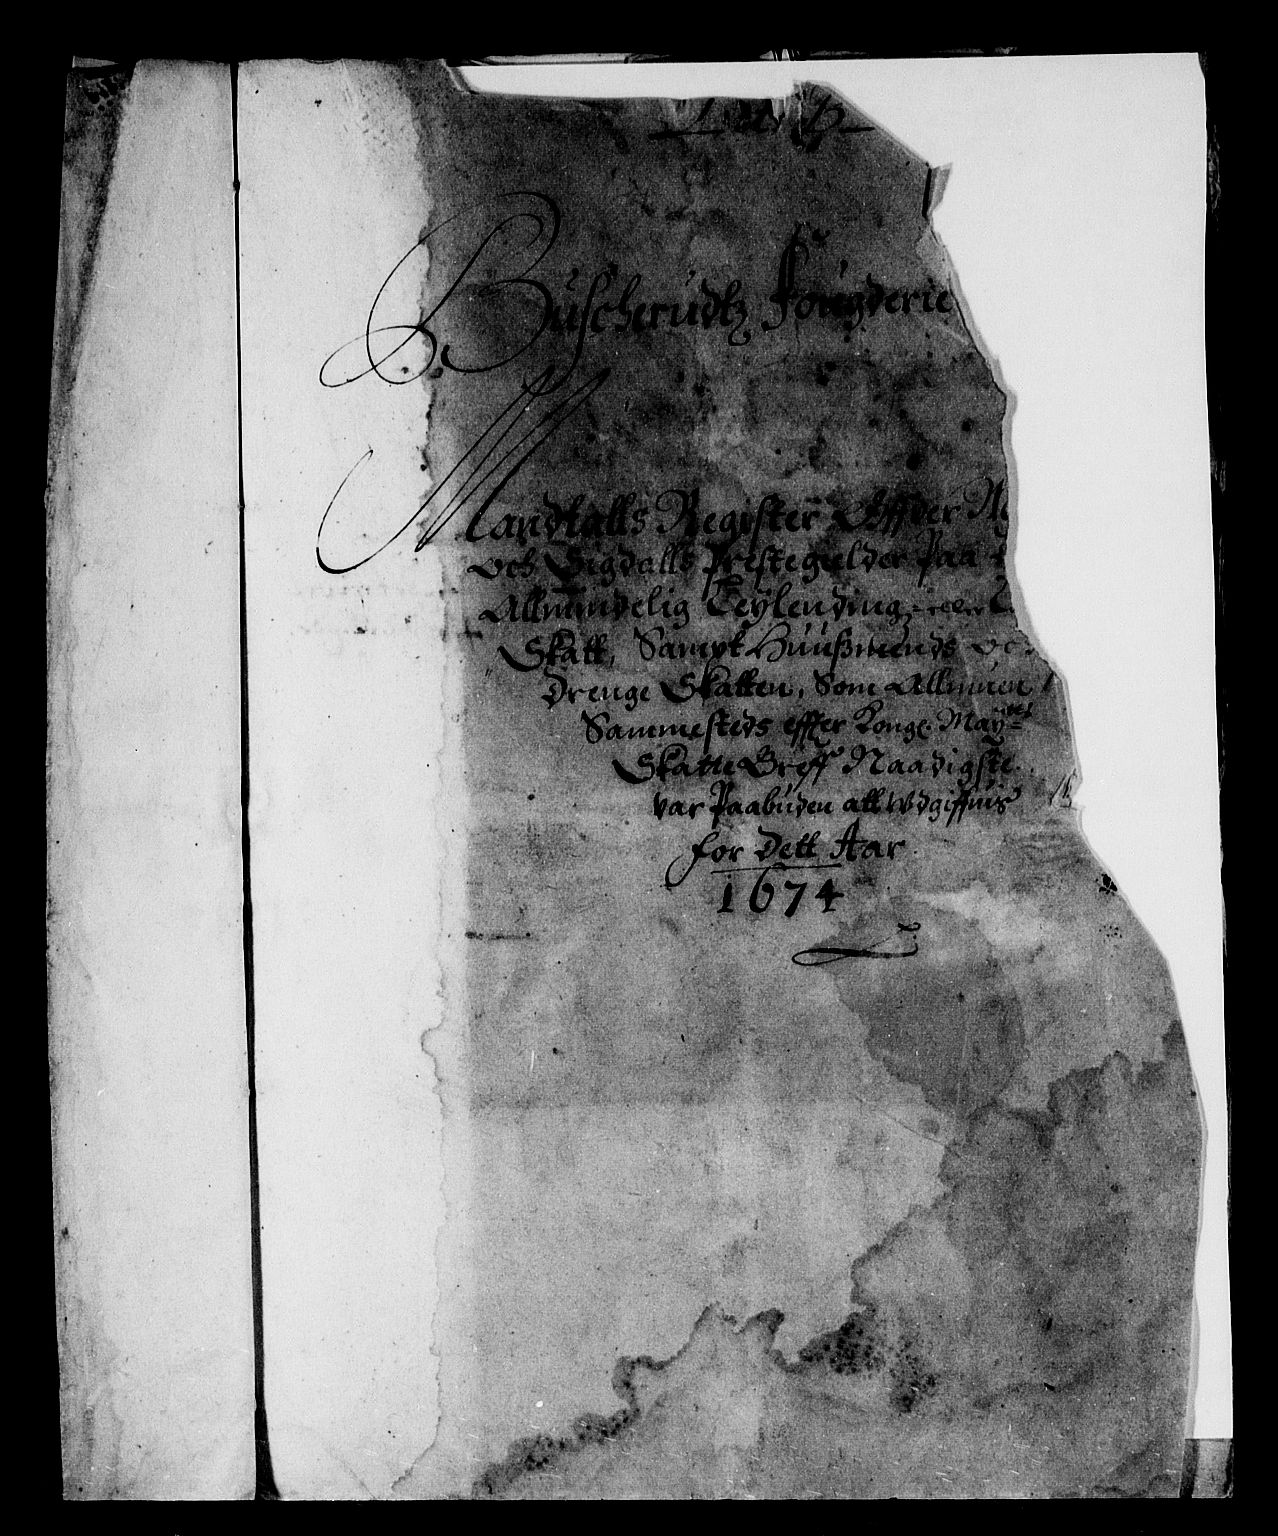 Buscherudtz fougderie
Mandtalls Register Offver
och Sigdalls prestegielder Paa
Allmindelig Leylending
Skatt, Sampt Huußmends och
drenge Skatten, Som Allmuen
Sammesteds effter Kongl. May:tts
Skatte Breff Naadigste
var Paabuden att udgiffuis
for dett Aar
1674